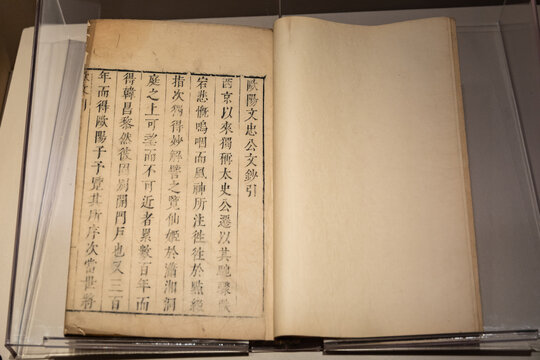 歐陽文忠公文鈔引
西京以來獨稱太史公遷以其馳驟跌
宕悲慨嗚咽而風神所注徃徃於點綴
指次獨得妙解譬之覽仙姬於瀟湘洞
庭之上可望而不可近者累數百年而
得韓昌黎然彼固別開門戶也又三百
年而得歐陽子予覽其所序次當世將